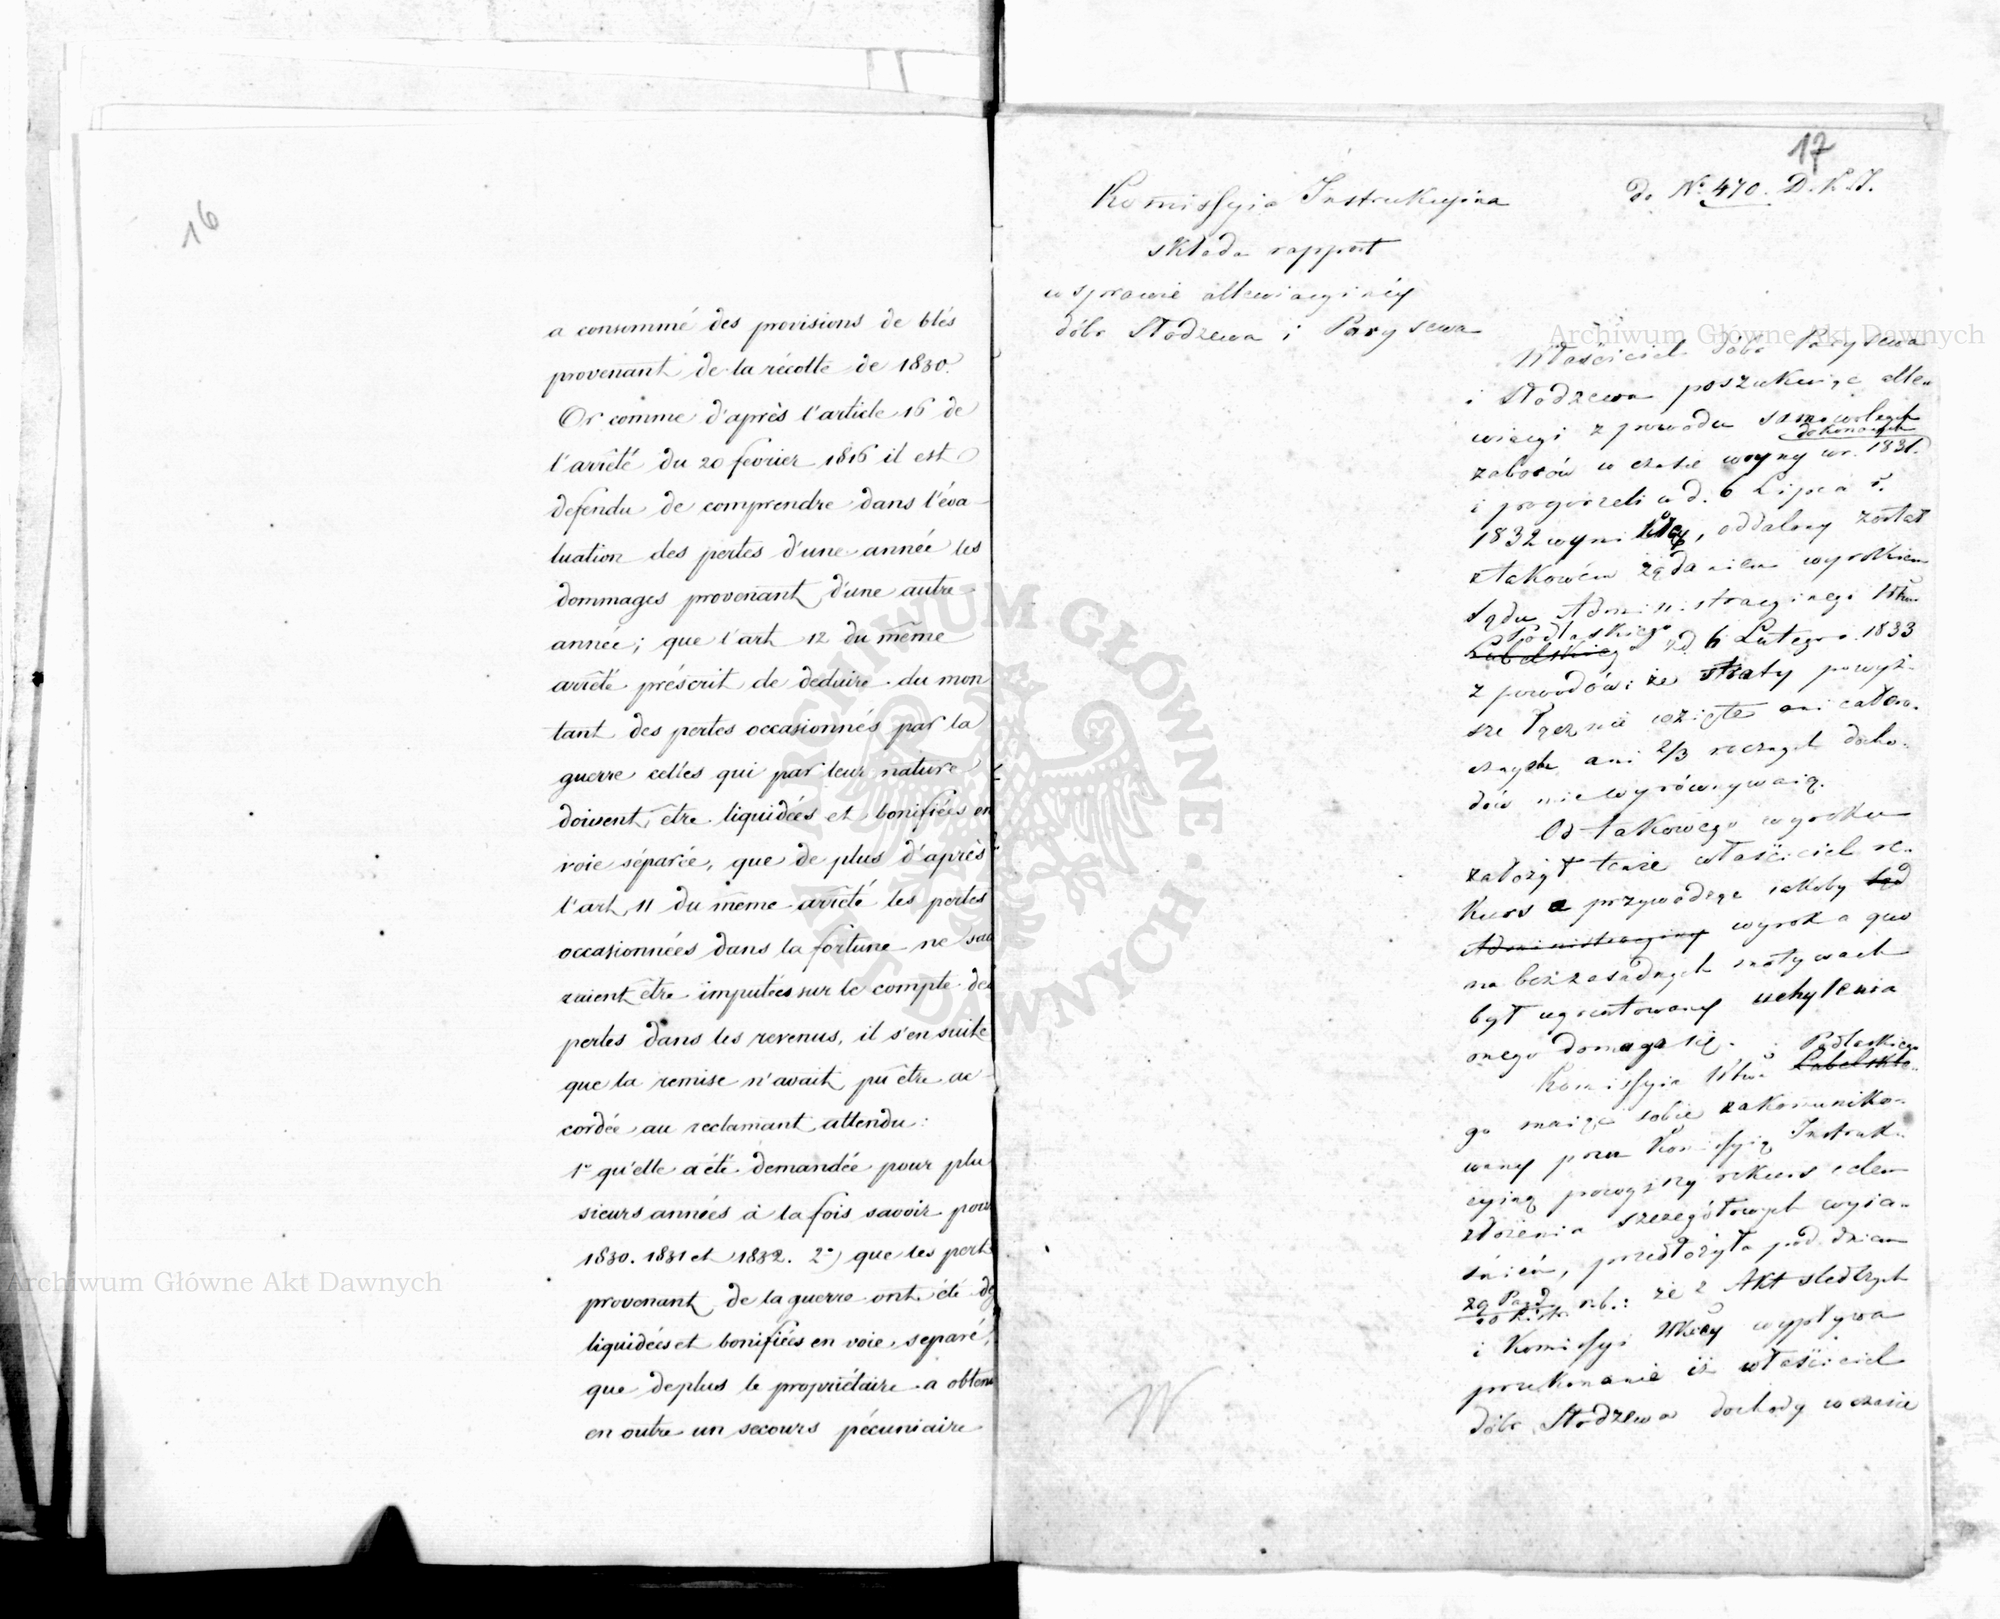 16
a consommé des provisions de blés
provenant de la récolte de 1830.
Or comme d'après l'article 16 de
l'arrêté du 20 fevrier 1816 il est
defendu de comprendre dans l'éva-
luation des pertes d'une année les
dommages provenant d'une autre
année; que l'art 12 du même
arrêté préscrit de deduire du mon
tant des pertes occasionnés par la
guerre celles qui par leur nature
doivent être liquidées et bonifiées en
voie séparée, que de plus d'après
l'art. 11 du même arrêté les pertes
occasionnées dans la fortune ne sau
raient être imputées sur le compte des
pertes dans les revenus, il s'en suite
que la remise n'avait pû être ac-
cordée au reclamant attendu:
1° qu'elle a été demandée pour plu
sieurs années à la fois savoir pour
1830. 1831 et 1832. 2°) que les pert
provenant de la guerre ont été dé
liquidées et bonifiées en voie separé,
que deplus le propriétaire a obtenu
en outre un secours pécuniaire
17
do N° 470. D.K.I.
Komissyia Instrukcyina
składa rapport
w sprawie allewiacyinéy
dóbr Stodzewa i Parysewa
Właściciel dóbr Parysewa
i Stodzewa poszukuiąc alle-
wiacyi z powodu samowolnych
dokonanych
zaborów w czasie woyny w r. 1831.
i pogorzeli w d. 6 Lipca r.
1832 wynikłéy, oddalony został
z takowém żądaniem wyrokiem
Sądu Administracyinego Wdtwa
Podlaskiego
Lubelskiego z d 6 Lutego r. 1833
z powodów: że straty powyż-
sze łącznie wzięte ani całoro-
cznych ani 2/3 rocznych docho-
dów nie wyrównywaią.
Od takowego wyroku
założył tenże właściciel re-
kurs a przywodząc iakoby Sąd
Administracyiny wyrok a quo
na bezzasadnych motywach
był ugruntowany uchylenia
onego domaga się.
Podlaskiego
Komissyia Wdtwa Lubelskie-
go maiąc sobie zakomuniko-
wany przez Komissyią Instruk-
cyiną powyższy rekurs celem
złożenia szczegółowych wyia-
śnień, przedłożyła pod dniem
29 Paźd r.b.: że z Akt śledczych
i Komissyi Wdzkiéy wypływa
przekonanie iż właściciel
dóbr Stodzewa dochody w czasie
Archiwum Główne Akt Dawnych
Archiwum Główne Akt Dawnych
ARCHIWUM GŁÓWNE AKT DAWNYCH